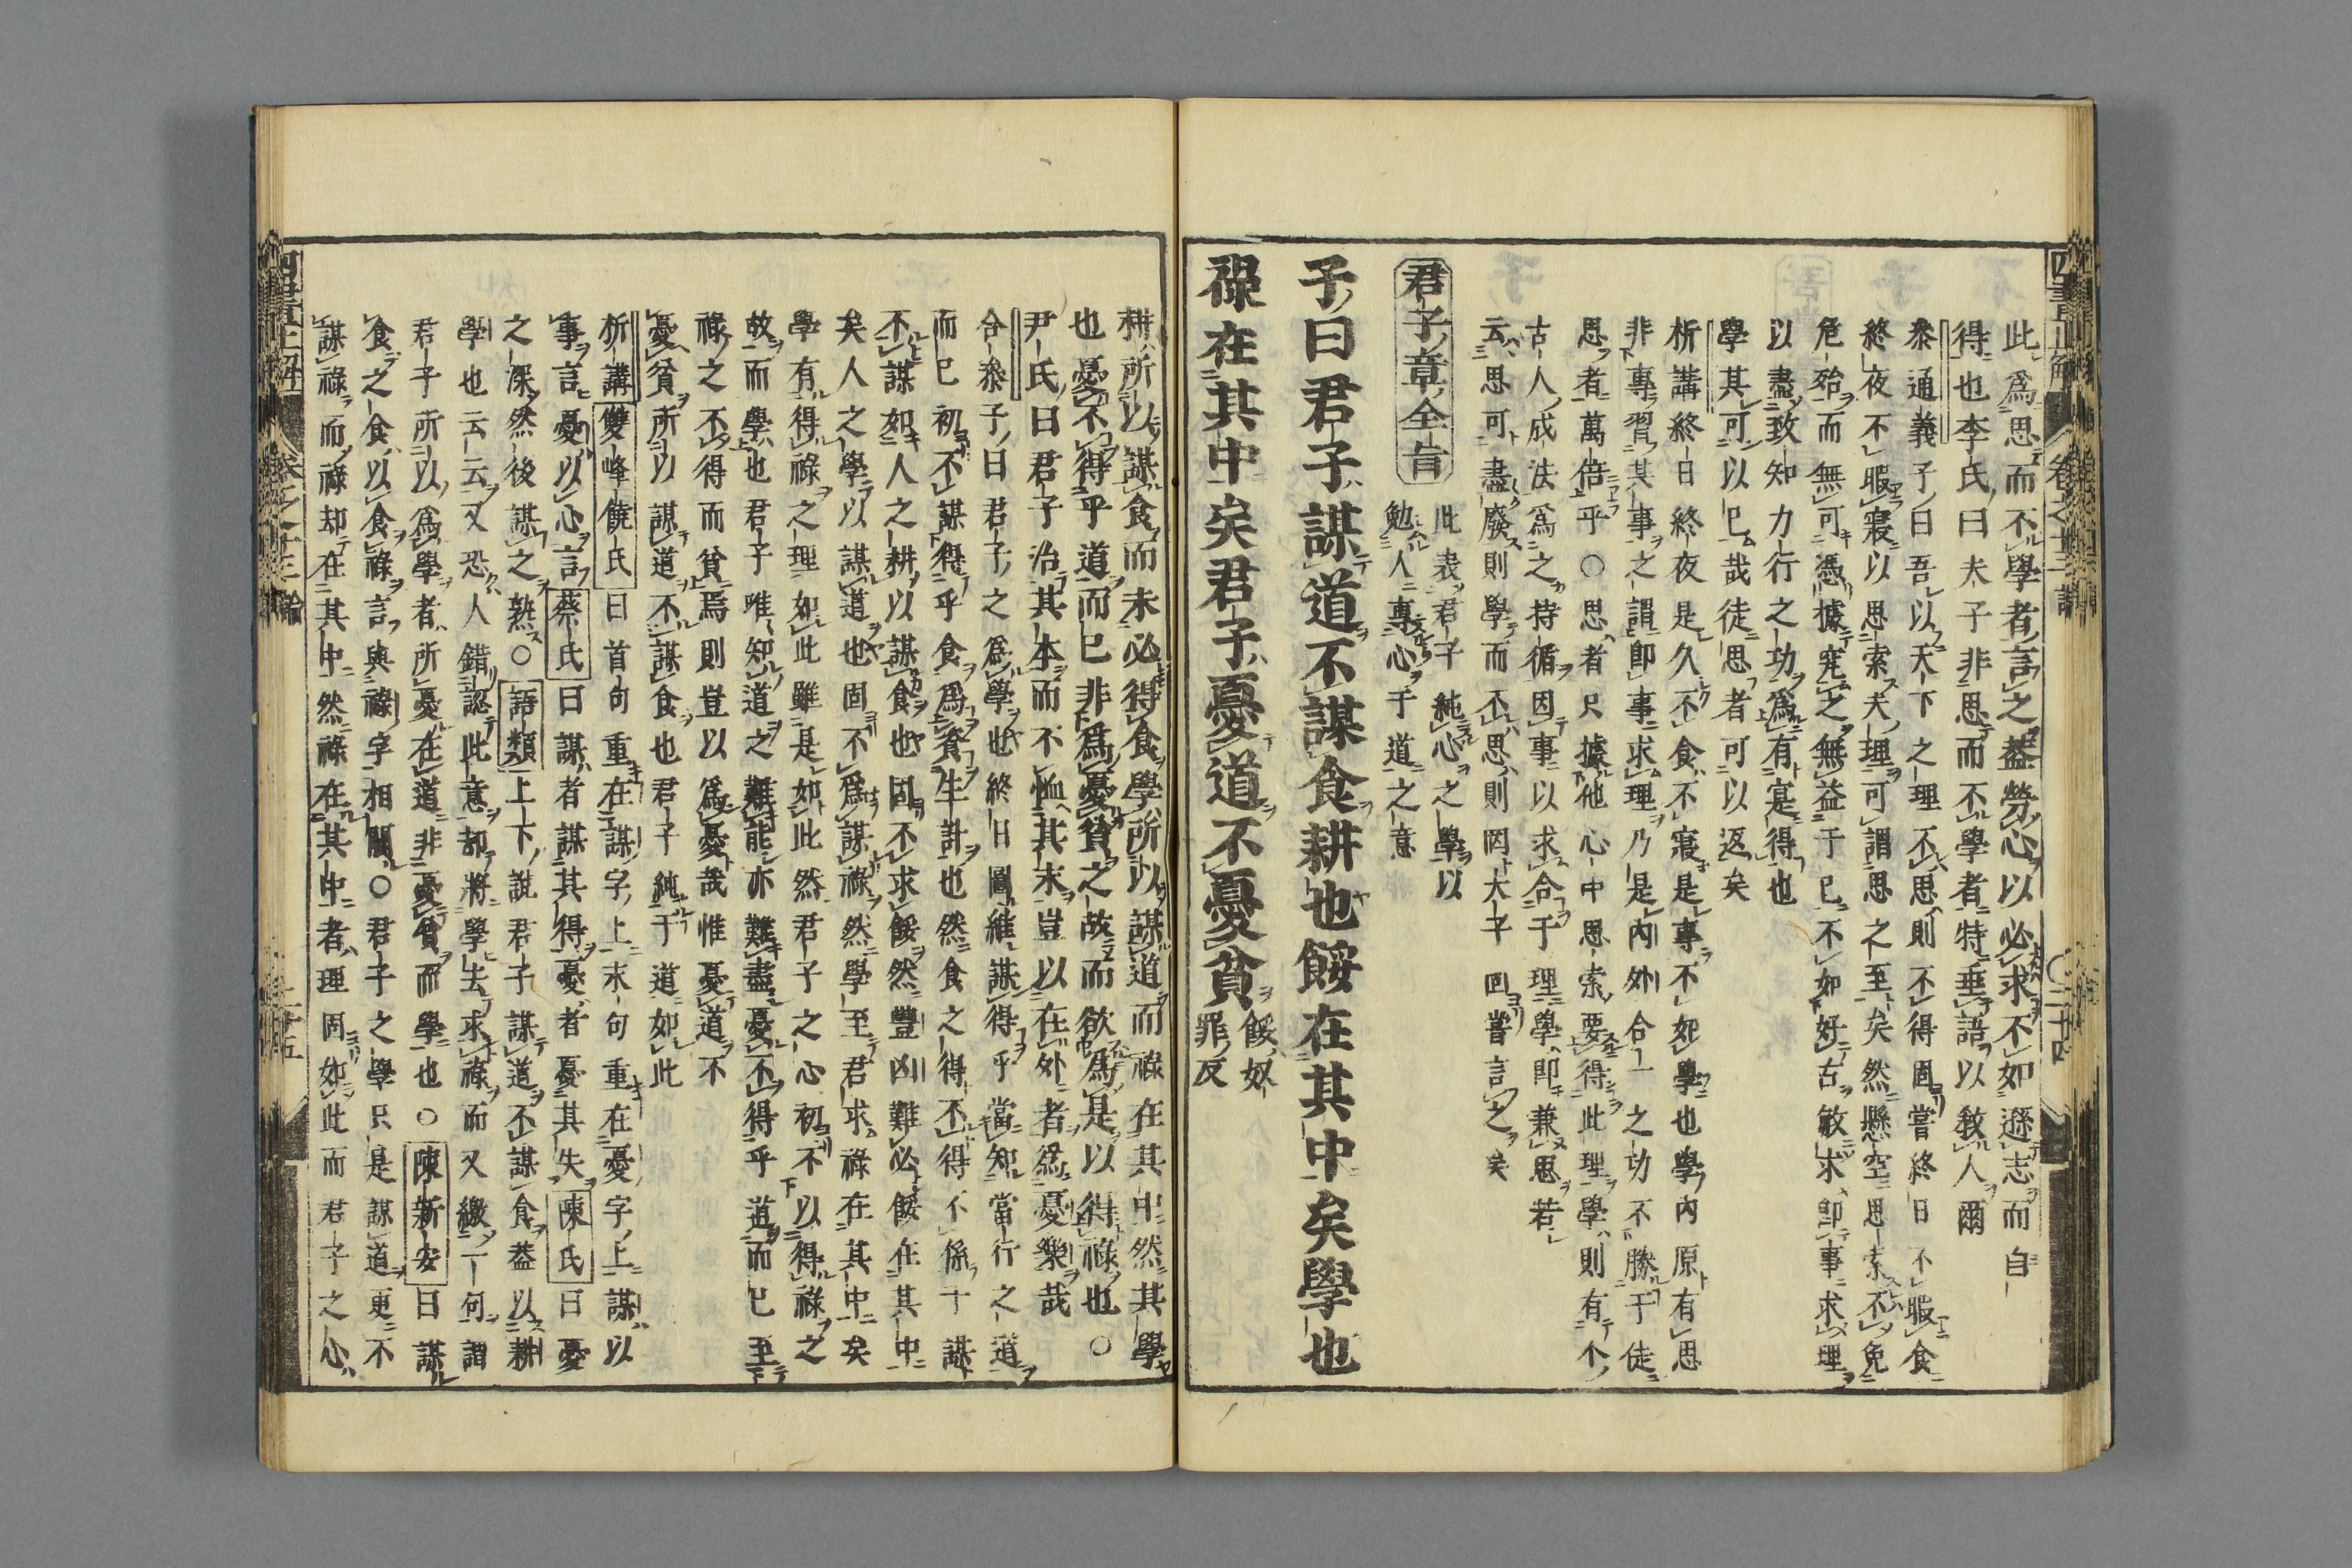 此爲思而不學者言之蓋勞心以必求不如遜志而自
得也李氏曰夫子非思而不學者特垂語以敎人爾
叅通義子曰吾以天下之理不思則不得固嘗終日不暇食
終夜不暇寢以思索夫理可謂思之至矣然懸空思索不免
危殆而無可憑據究之無益于已不如好古敏求卽事求理
以盡致知力行之功爲有寔得也
學其可以已哉徒思者可以返矣
析講終日終夜是久不食不寢是專不如學也學內原有思
非專習其事之謂卽事求理乃是內外合一之功不勝于徒
思者萬倍乎○思者只據他心中思索要得此理學則有个
古人成法爲之持循因事以求合于理學卽兼思若
云思可盡廢則學而不思則罔夫子固嘗言之矣
君子章全旨
此表君子純心之學以
勉人專心于道之意
子曰君子謀道不謀食耕也餒在其中矣學也
祿在其中矣君子憂道不憂貧
餒奴
罪反
四書正解
卷之十三
論
二十四
耕所以謀食而未必得食學所以謀道而祿在其中然其學
也憂不得乎道而已非爲憂貧之故而欲爲是以得祿也○
尹氏曰君子治其本而不恤其末豈以在外者爲憂樂哉
合叅子曰君子之爲學也終日圖維謀得乎當知當行之道
而已初不謀得乎食爲貧生計也然食之得不得不係于謀
不謀如人之耕以謀食也固不求餒然豐凶難必餒在其中
矣人之學以謀道也固不爲謀祿然學至君求祿在其中矣
學有得祿之理如此雖是如此然君子之心初不以得祿之
故而學也君子唯知道之難能亦難盡憂不得乎道而已至
祿之不得而貧焉則豈以爲憂哉惟憂道不
憂貧所以謀道不謀食也君子純于道如此
析講雙峰饒氏曰首句重在謀字上末句重在憂字上謀以
事言憂以心言蔡氏曰謀者謀其得憂者憂其失陳氏曰憂
之深然後謀之熟○語類上下說君子謀道不謀食蓋以耕
學也云云又恐人錯認此意却將學去求祿而又繳一句謂
君子所以爲學者所憂在道非憂貧而學也○陳新安曰謀
食之食以食祿言與祿字相關○君子之學只是謀道更不
謀祿而祿却在其中然祿在其中者理固如此而君子之心
四書正解
卷之十三
論
二十五